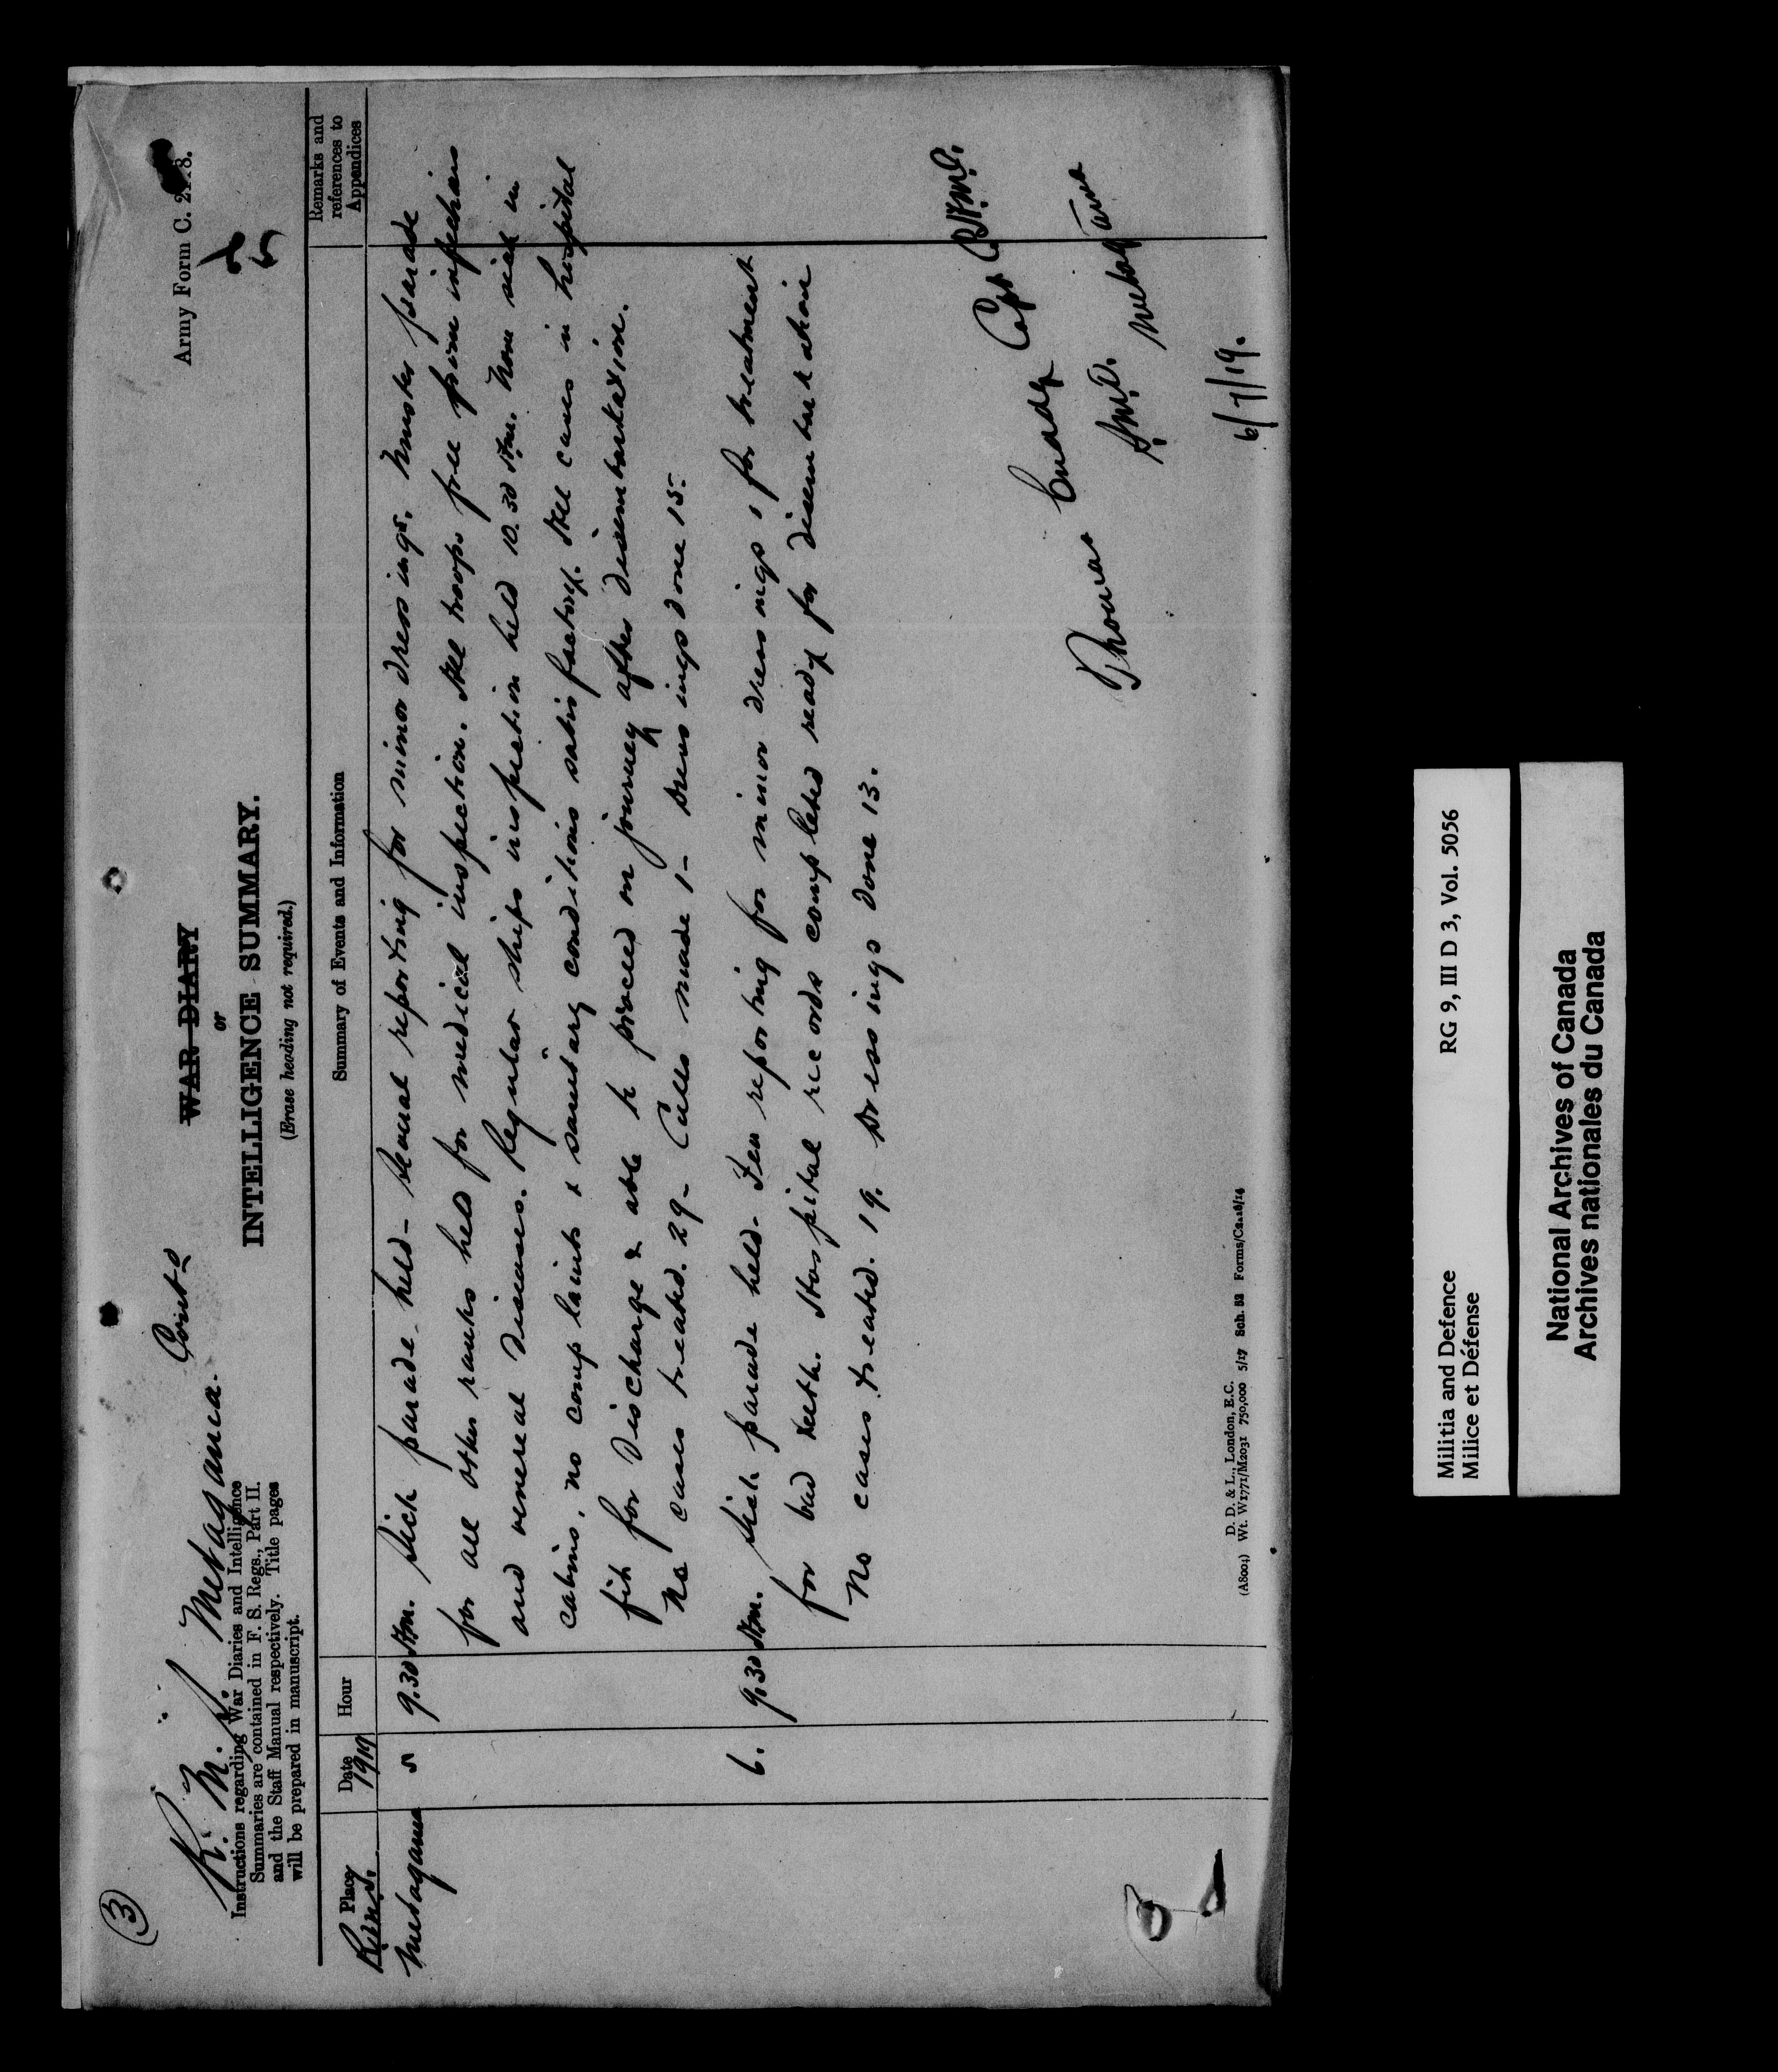 (3)
R. M. S. Metagama. Contd
Army Form C. 2118.
WAR DIARY
or
INTELLIGENCE SUMMARY.
(Erase heading not required.)
Instructions regarding War Diaries and Intelligence
Summaries are contained in F. S. Regs., Part II.
and the Staff Manual respectively. Title pages
will be prepared in manuscript.
Place
Date
Hour
Summary of Events and Information
Remarks and
references to
Appendices
R.M.S. 1919
Metagama 5 9.30 Am. Sick parade held - Several reporting for minor dressings. Muster parade
for all other ranks held for medical inspection. All troops free from infectious
and venereal diseases. Regular ships inspection held 10.30 Am. None sick in
cabins, no complaints & sanitary conditions satisfactory. All cases in hospital
fit for discharge & able to proceed on journey after disembarkation.
No cases treated. 29 - Calls made 1 - Dressings done 15.
6. 9.30 Am. Sick parade held. Few reporting for minor dressings, & for treatment
for bad teeth. Hospital records completed ready for disembarkation
No cases treated. 19. Dressings done 13.
Thomas Capt C.A.M.C.
S.M.O. Metagama
6/7/19.
D. D. & L., London, E.C.
(A8004) Wt. W1771/M2031 750,000 5/17 Sch. 52 Forms/C2118/14
Militia and Defence RG 9, III D 3, Vol. 5056
Milice et Défense
National Archives of Canada
Archives nationales du Canada